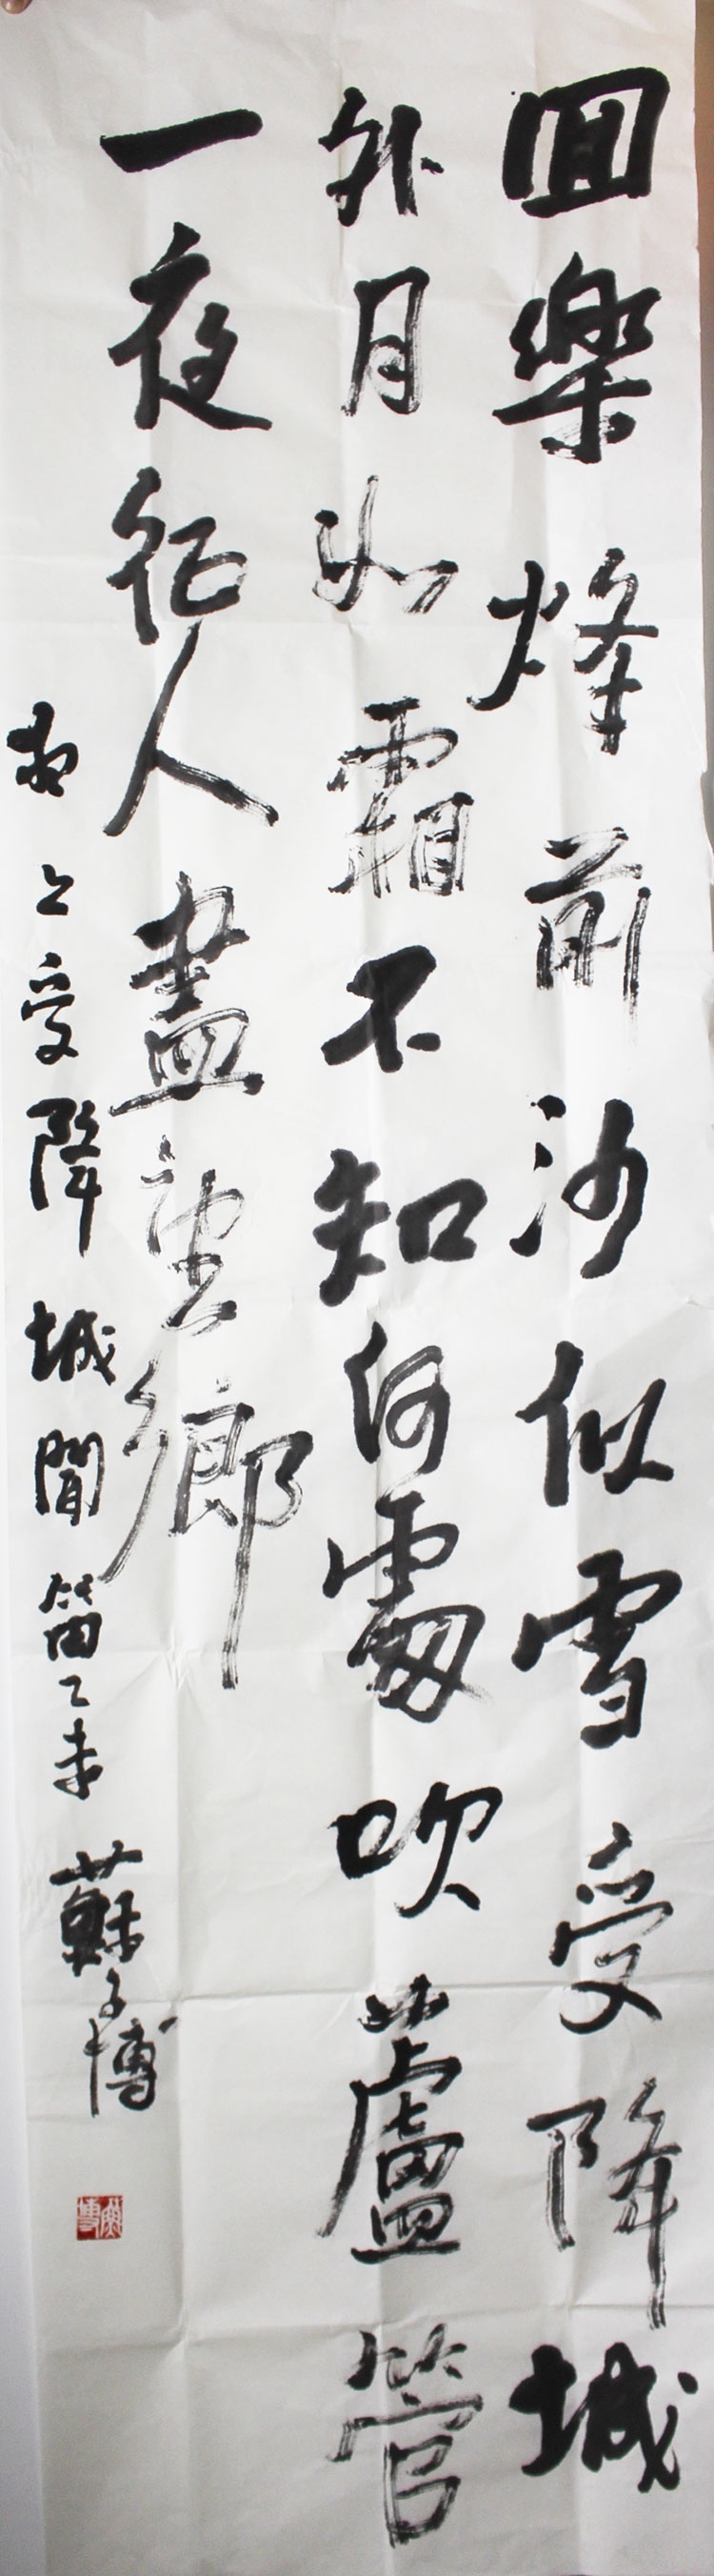 回樂烽前沙似雪受降城
外月如霜不知何處吹蘆管
一夜征人盡望鄉
夜上受降城聞笛乙未蘇子博